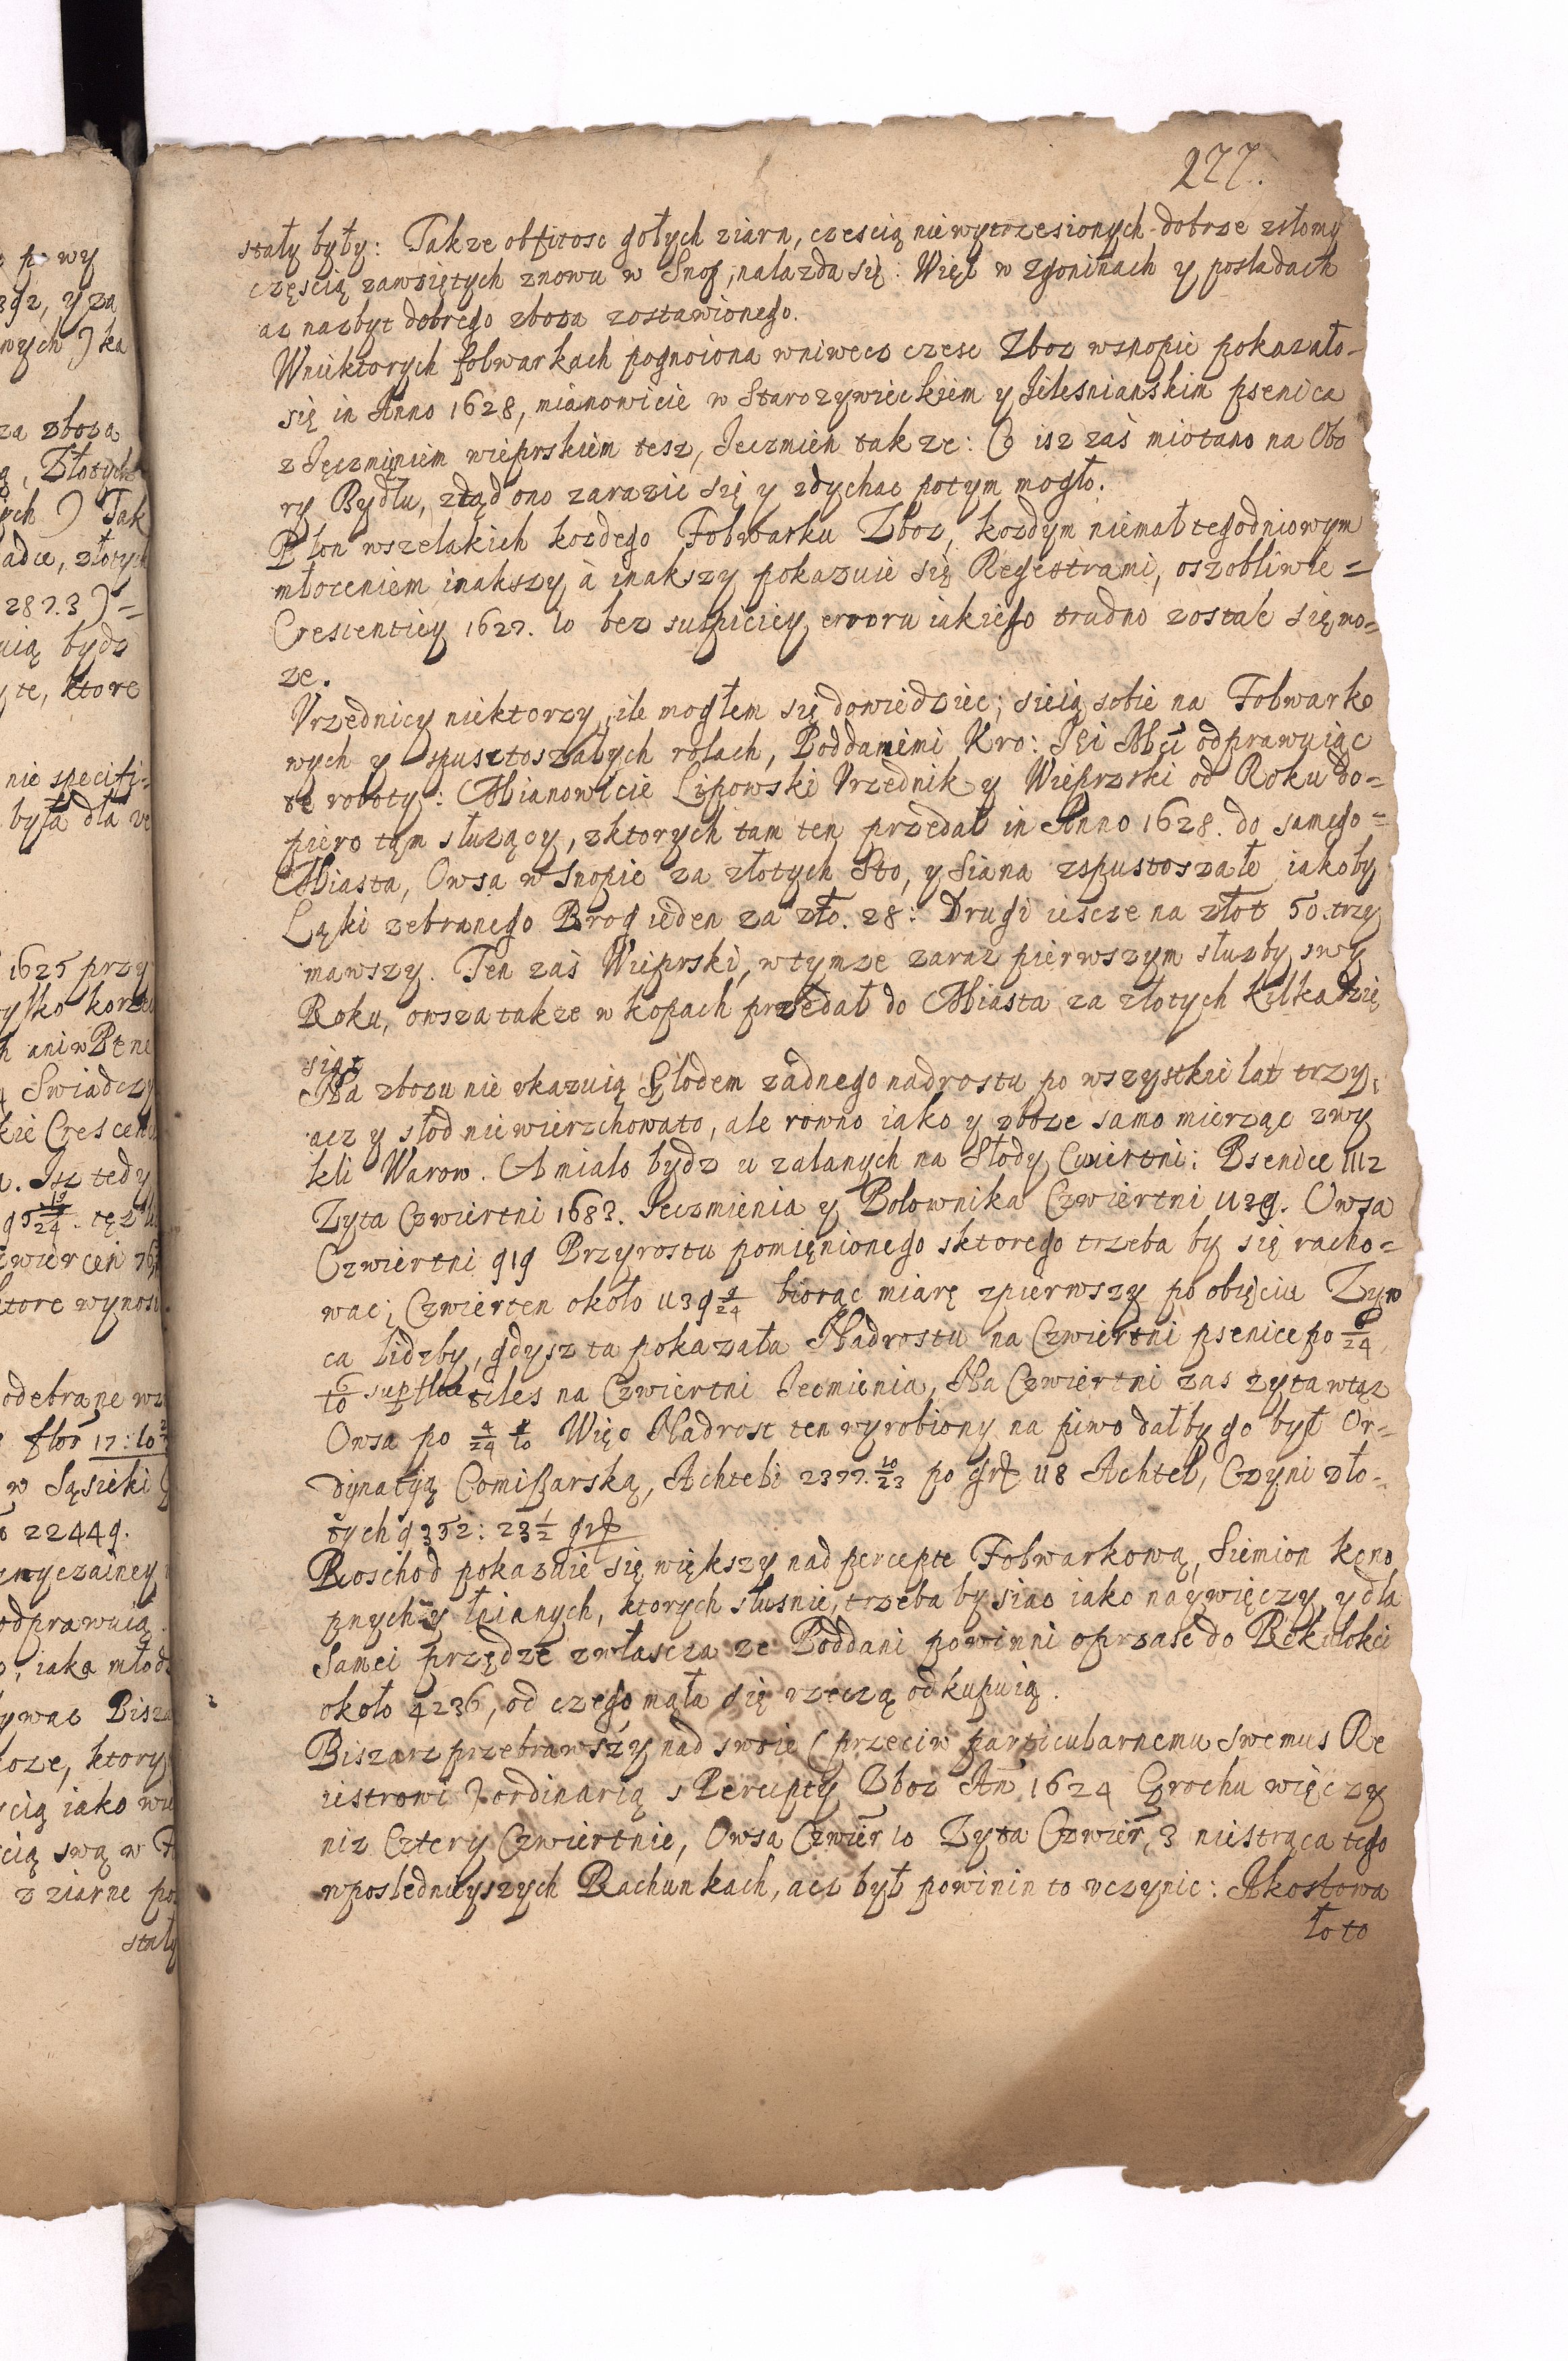 277.
stały były: Takze obfitosc gołych ziarn, czescią nie wytrzesionych dobrze zsłomy
częscią zawziętych znowu w Snop, nalazda się: Więc w zgoninach y posladach
az nazbyt dobrego zboza zostawionego.
Wniektorych folwarkach pognoiona wniwecz czesc Zboz wsnopie pokazało-
się in Anno 1628, mianowicie w Starozywieckiem y Jelesnianskim psenica
z Jęczmieniem wieprskiem tesz, Jeczmien takze: Co isz zaś miotano na Obo
ry Bydłu, ztąd ono zarazic się y zdychac potym mogło.
Plon wszelakich kozdego Folwarku Zboz, kozdym niemal tegodniowym
młoceniem inakszy à inakszy pokazuie się Regestrami, oszobliwie =
Crescentiey 1627. lo bez suspiciey erroru iakiego trudno zostac się mo=
ze.
Vrzednicy niektorzy, ile mogłem się dowiedziec; sieią sobie na Folwarko
wych y spustoszałych rolach, Poddanemi Kro: Jei Mci odprawuiąc
te roboty: Mianowicie Lipowski Vrzednik y Wieprzski od Roku do=
piero tam słuzący, zktorych tam ten przedał in Anno 1628. do samego =
Miasta, Owsa w Snopie za złotych Sto, y Siana zspustoszałe iakoby
Łąki zebranego Brog ieden za zło. 28: Drugi iescze na złot 50. trzy
mawszy. Ten zaś Wieprski, wtymze zaraz pierwszym słuzby swy
Roku, owsza takze w kopach przedał do Miasta za złotych kilkadzie
siąt
Na zbozu nie vkazuią Słodem zadnego nadrostu po wszystkie lat trzy,
acz y słod nie wierzchowato, ale rowno iako y zboze samo mierząc zwy
kli Warow. A mialo bydz u zalanych na Słody Cwiertni: Psenice 1112
Zyta Czwiertni 1683. Jeczmienia y Połownika Czwiertni 1139. Owsa
Czwiertni 919 Przyrostu pomienionego sktorego trzeba by się racho=
wac; Czwierten około 1139 9/24 biorąc miarę zpierwszy po obięciu Zyw
ca lidzby, gdysz ta pokazała Nadrostu na Czwiertni psenice po 6/24,
na Czwiertni Jecmienia, Na Czwiertni zas zyta wtąz
Owsa po 4/24 Więc Nadrost ten wyrobiony na piwo dałby go był Or-
dynatią Comißarską, Achteli 2377. 10/23 po gr 118 Achtel, Czyni zło-
tych 9352: 23 1/2 gr
Roschod pokazuie się większy nad percepte Folwarkową, Siemion kono
pnych y lnianych, ktorych słusnie, trzeba by siac iako naywięczy, y dla
Samei przędze zwłascza ze Poddani powinni oprzasc do Roku lokci
około 4236, od czego mała się rzeczą odkupuią.
Piszarz przebrawszy nad swoie (przeciw particularnemu Swemus Re
iestrowi) ordinarią s Percepty Zboz An 1624 Grochu więczy
niz Cztery Czwiertnie, Owsa Czwier 10 Zyta Czwier, 3 niestrąca tego
wposlednieyszych Rachunkach, acz był powinin to vczynic: Akosłowa
ło to